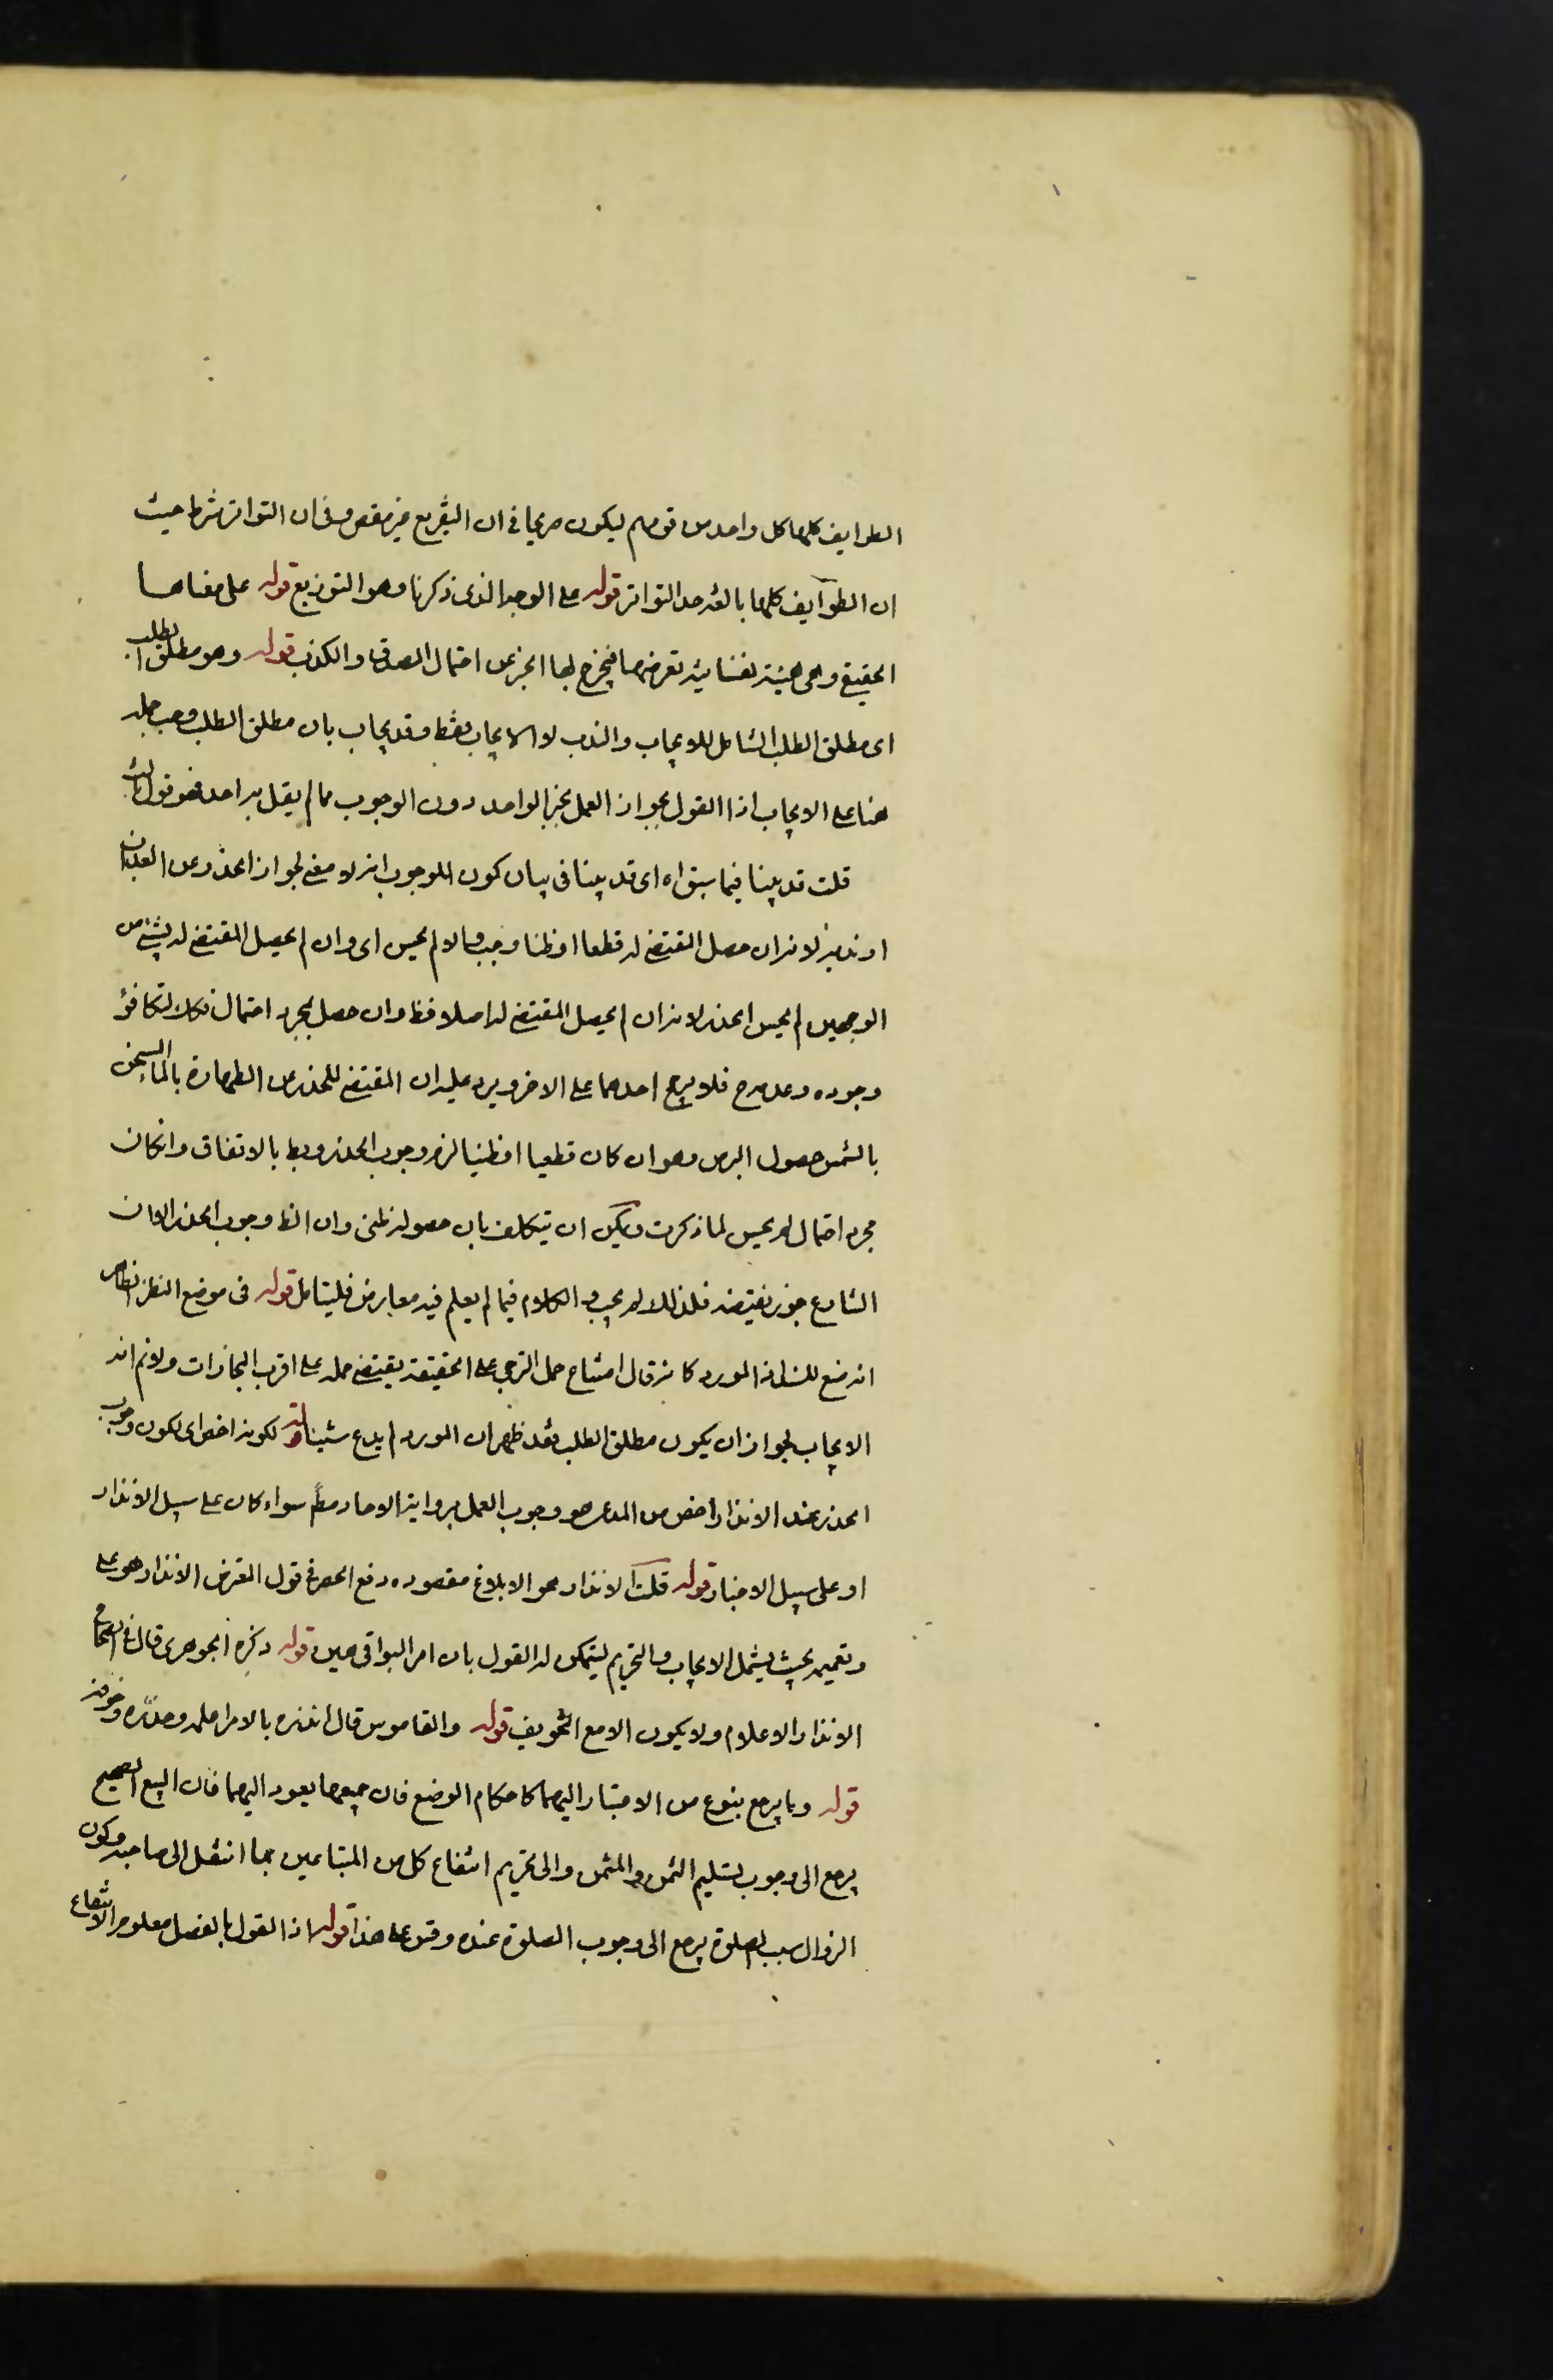 الطوايف كلها كل واحد من قومهم ليكون صريحا في ان التفريع غير مقصور في ان التواتر شرط حيث
ان الطوآيف كلها بالغة حد التواتر قوله على الوجه الذى ذكرنا وهو التوزيع قوله على معناها
الحقيقي وهى هيئة نفسانية تعرضها فيخرج لها الخبر عن احتمال الصدق والكذب قوله وهو مطلق الطلب
اى مطلق الطلب الشامل للايجاب والندب لا الايجاب فقط وقد يجاب بان مطلق الطلب وجب حمله
هنا على الايجاب اذا القول بجواز العمل بخبر الواحد دون الوجوب مما لم يقل به احد فهو قول ثالث
قلت قد بينا فيما سبق اه اى قد بينا فى بيان كون للوجوب انه لا معنى لجواز الحذر عن العذاب
او ندبه لانه ان حصل المقتضى له قطعا او ظنا وجب والا لم يحسن اى وان لم يحصل المقتضى له بشئ من
الوجهين لم يحسن الحذر لانه ان لم يحصل المقتضى له اصلا فظ وان حصل بمجرد احتمال فكك لتكافؤ
وجوده وعدمه ح فلا يرجح احدهما على الاخر ويرد عليه ان المقتضى للحذر من الطهارة بالماء المسخن
بالشمس حصول البرص وهو ان كان قطعيا او ظنيا لزم وجوب الحذر وبط بالاتفاق وانكان
مجرد احتمال لم يحسن لما ذكرت ويمكن ان يتكلف بان حصوله ظنى وان الظ وجوب الحذر الا ان
الشارع جوز نقيضه فلذلك لم يجب والكلام فيما لم يعلم فيه معارض فليتامل قوله فى موضع النظر الظاهر
انه منع للسند اذ المورد كانه قال امتناع حمل الترجى على الحقيقة يقتضى حمله على اقرب المجازات ولا نم انه
الايجاب لجواز ان يكون مطلق الطلب فقد ظهر ان المورد لم يدع شيئا قوله لكونه اخص اى لكون وجوب
الحذر عند الانذار اخص من المدعى هو وجوب العمل برواية الاحاد مط سواء كان على سبيل الانذار
او على سبيل الاخبار قوله قلت الانذار هو الابلاغ مقصوده دفع الحصر فى قول المعترض الانذار هو على
وتعميمه بحيث يشمل الايجاب والتحريم ليتمكن له القول بان امر البواقى هين قوله ذكره الجوهرى قال فى الصحاح
الانذار الاعلام ولا يكون الا مع التخويف قوله والقاموس قال انذره بالامر اعلمه وحذره وخوفه
قوله وما يرجع بنوع من الاعتبار اليهما كاحكام الوضع فان جميعها يعود اليهما فان البيع الصحيح
يرجع الى وجوب تسليم الثمن والمثمن والى تحريم انتفاع كل من المتبايعين بما انتقل الى صاحبه وكون
الزوال سبب لصلوة يرجع الى وجوب الصلوة عنده وقس على هذا قوله اذ القول بالفصل معلوم الانتفاء